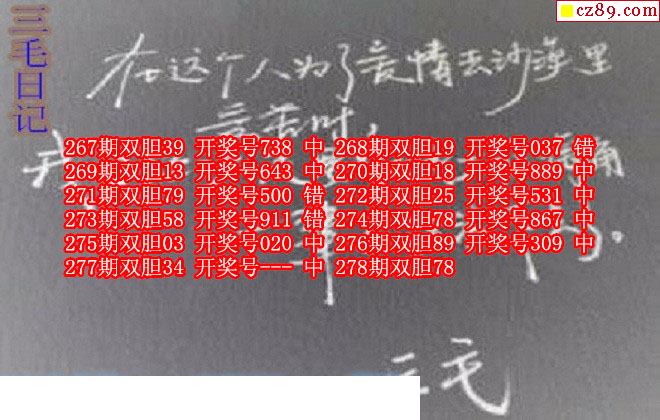 cz89.com
三毛日记
在这个人为了爱情去沙漠里
267期双胆39 开奖号738 中 268期双胆19 开奖号037 错
269期双胆13 开奖号643 中 270期双胆18 开奖号889 中
271期双胆79 开奖号500 错 272期双胆25 开奖号531 中
273期双胆58 开奖号911 错 274期双胆78 开奖号867 中
275期双胆03 开奖号020 中 276期双胆89 开奖号309 中
277期双胆34 开奖号--- 中 278期双胆78
三毛